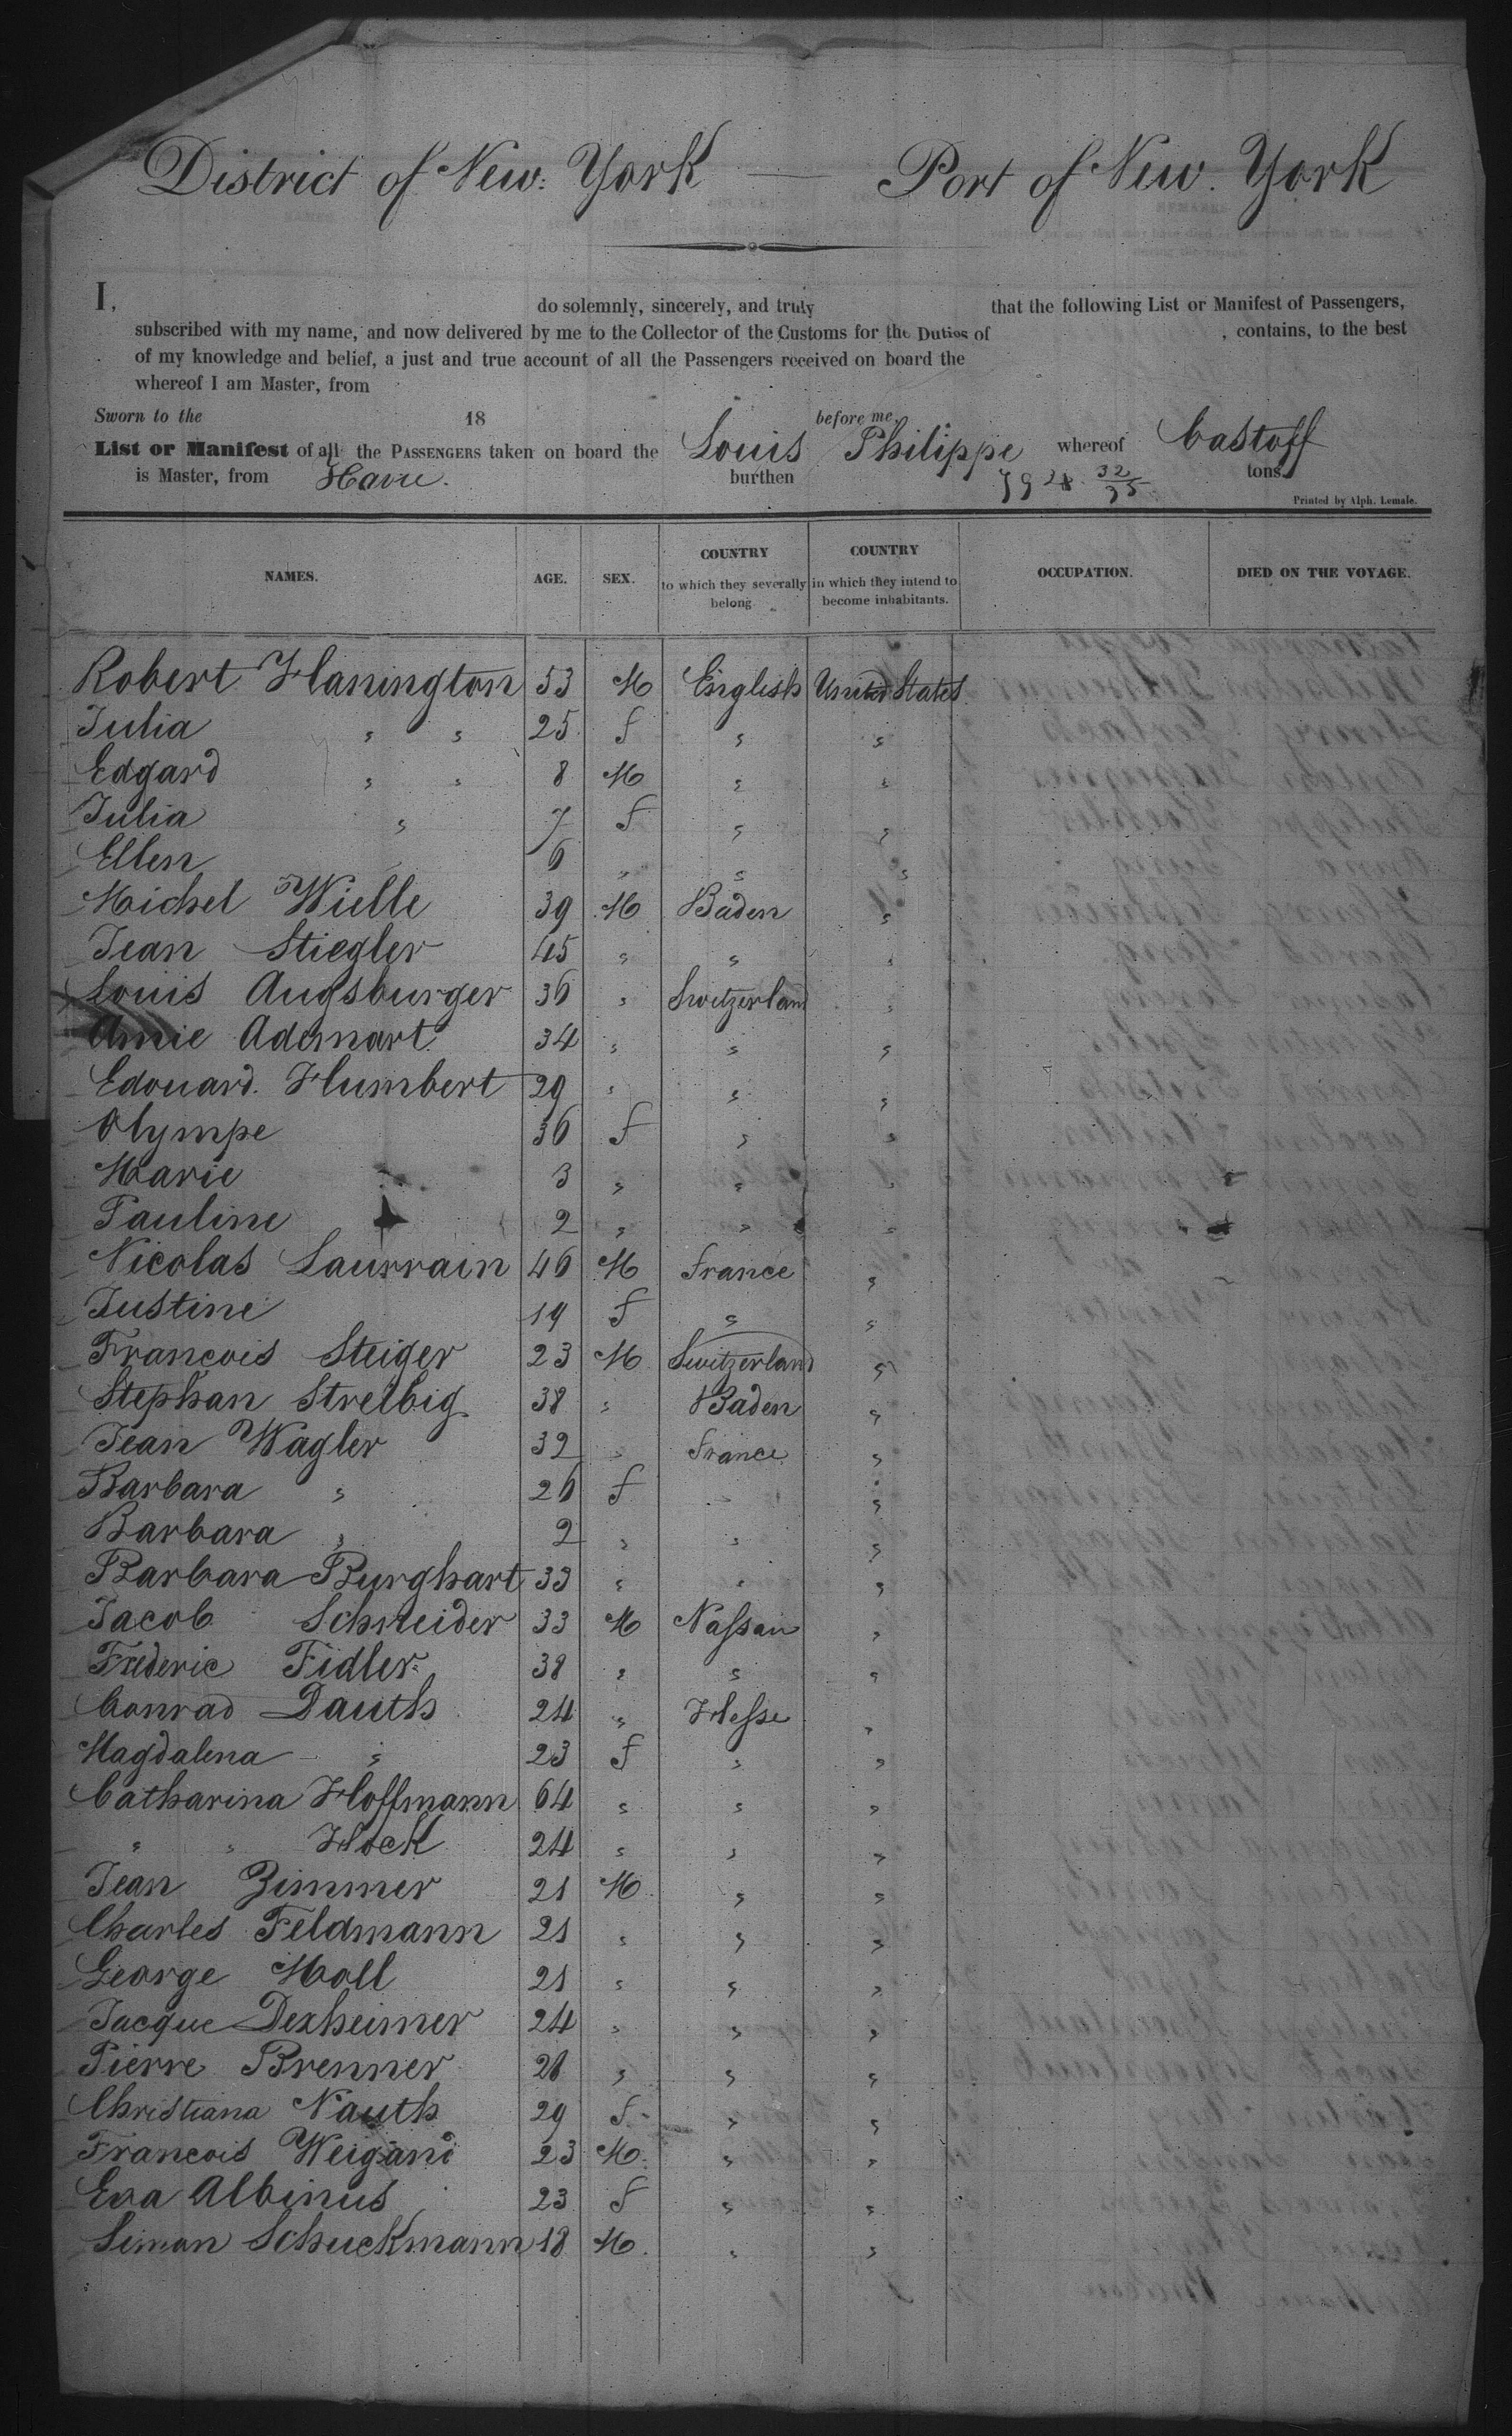 District of New: York — Port of New. York
I, do solemnly, sincerely, and truly that the following List or Manifest of Passengers,
subscribed with my name, and now delivered by me to the Collector of the Customs for the Duties of , contains, to the best
of my knowledge and belief, a just and true account of all the Passengers received on board the
whereof I am Master, from
Sworn to the 18 before me,
List or Manifest of all the PASSENGERS taken on board the Louis Philippe whereof Castoff
is Master, from Havre. burthen tons.
Printed by Alph. Lemale.
NAMES. AGE. SEX. COUNTRY to which they severally belong. COUNTRY in which they intend to become inhabitants. OCCUPATION. DIED ON THE VOYAGE.
Robert Hanington 53 M English United States
Julia " " 25 f " "
Edgard " " 8 M " "
Julia " 7 f " "
Ellen 6 " " "
Michel Wielle 39 M Baden "
Jean Stiegler 45 " " "
Louis Augsburger 36 " Switzerland "
Amie Ademart 34 " " "
Edouard. Humbert 29 " " "
Olympe 36 f " "
Marie 3 " " "
Pauline 2 " " "
Nicolas Laurrain 46 M France "
Justine 19 f " "
Francois Steiger 23 M Switzerland "
Stephan Strelbig 38 " Baden "
Jean Wagler 32 " France "
Barbara " 26 f " "
Barbara " 2 " " "
Barbara Burghart 33 " " "
Jacob Schneider 33 M Nassau "
Frederic Fidler 38 " " "
Conrad Dauth 24 " Hesse "
Magdalena " 23 f " "
Catharina Hoffmann 64 " " "
" " Hock 24 " " "
Jean Zimmer 21 M " "
Charles Feldmann 21 " " "
George Moll 21 " " "
Jacque Dexheimer 24 " " "
Pierre Brenner 28 " " "
Christiana Nauth 29 f " "
Francois Weigand 23 M " "
Eva Albinus 23 f " "
Simon Schuckmann 18 M " "